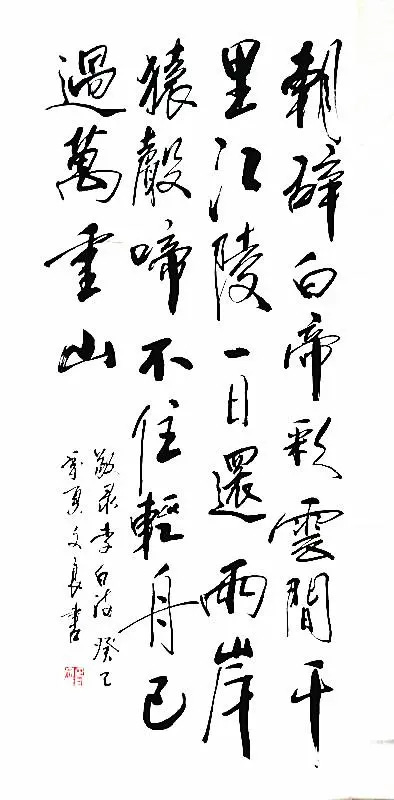 朝辞白帝彩雲間千
里江陵一日還兩岸
猿聲啼不住輕舟已
過萬重山
敬录李白诗 癸巳
夏文良书